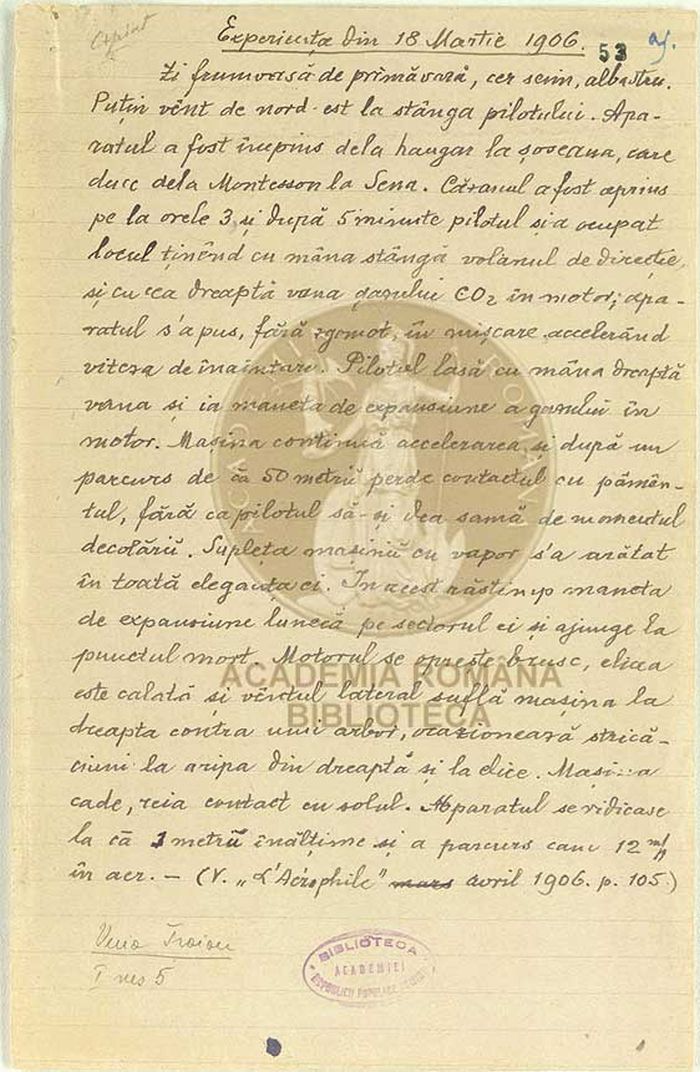 Experiența din 18 Martie 1906.
53
Zi frumoasă de primăvară, cer senin, albastru.
Puțin vênt de nord-est la stânga pilotului. Apa-
ratul a fost împins dela hangar la șoseaua, care
duce dela Montesson la Sena. Căzanul a fost aprins
pe la orele 3 și după 5 minute pilotul și a ocupat
locul ținênd cu mâna stângă volanul de direcție,
și cu cea dreaptă vana gazului CO2 în motor; apa-
ratul s'a pus, fără zgomot, în mișcare accelerând
viteza de înaintare. Pilotul lasă cu mâna dreaptă
vana și ia maneta de expansiune a gazului în
motor. Mașina continuă accelerarea și după un
parcurs de ca 50 metrii perde contactul cu pămên-
tul, fără ca pilotul să-și dea samă de momentul
decolării. Suplețea mașinii cu vapor s'a arătat
în toată eleganța ei. In acest răstimp maneta
de expansiune lunecă pe sectorul ei și ajunge la
punctul mort. Motorul se oprește brusc, elicea
este calată și vêntul lateral suflă mașina la
dreapta contra unui arbor, ocazionează strică-
ciuni la aripa din dreapta și la elice. Mașina
cade, reia contact cu solul. Aparatul se ridicase
la ca 1 metru înălțime și a parcurs cam 12 m
în aer. — (V. „L'Aérophile" mars avril 1906. p. 105.)
Vuia Traian
I ms 5
BIBLIOTECA
ACADEMIEI
REPUBLICII POPULARE
ACADEMIA ROMÂNA
BIBLIOTECA